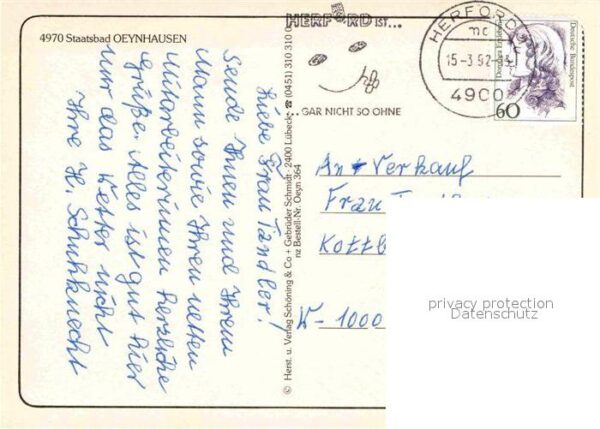 4970 Staatsbad OEYNHAUSEN
Liebe Frau Tandler!
Sende Ihnen und Ihrem
Mann sowie Ihren netten
Mitarbeiterinnen herzliche
Grüße. Alles ist gut hier
nur das Wetter nicht
Ihre H. Schuhknecht
© Herst. u. Verlag Schöning & Co + Gebrüder Schmidt · 2400 Lübeck · ☎ (0451) 310 310
nz Bestell-Nr. Oeyn 364
HERFORD IST...
...GAR NICHT SO OHNE
HERFORD
mc
15-3.92-
4900
Deutsche Bundespost
60
An Verkauf
Frau
Kottb
W-1000
privacy protection
Datenschutz